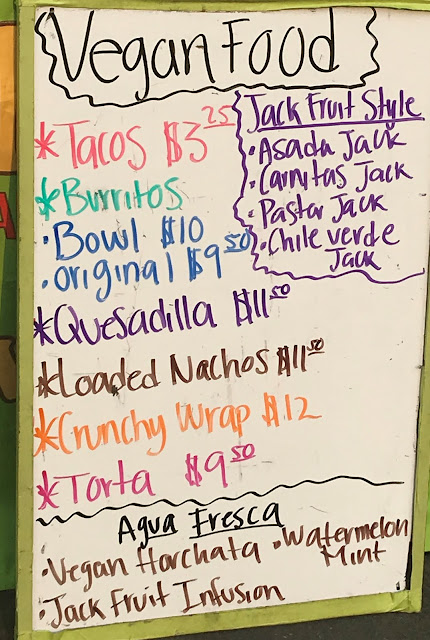 Vegan Food
*Tacos $3.25
*Burritos
•Bowl $10
•original $9.50
Jack Fruit Style
•Asada Jack
•Carnitas Jack
•Pastor Jack
•Chile verde
Jack
*Quesadilla $11.50
*Loaded Nachos $11.50
*Crunchy Wrap $12
*Torta $9.50
Agua Fresca
•Vegan Horchata
•Watermelon
Mint
•Jack Fruit Infusion